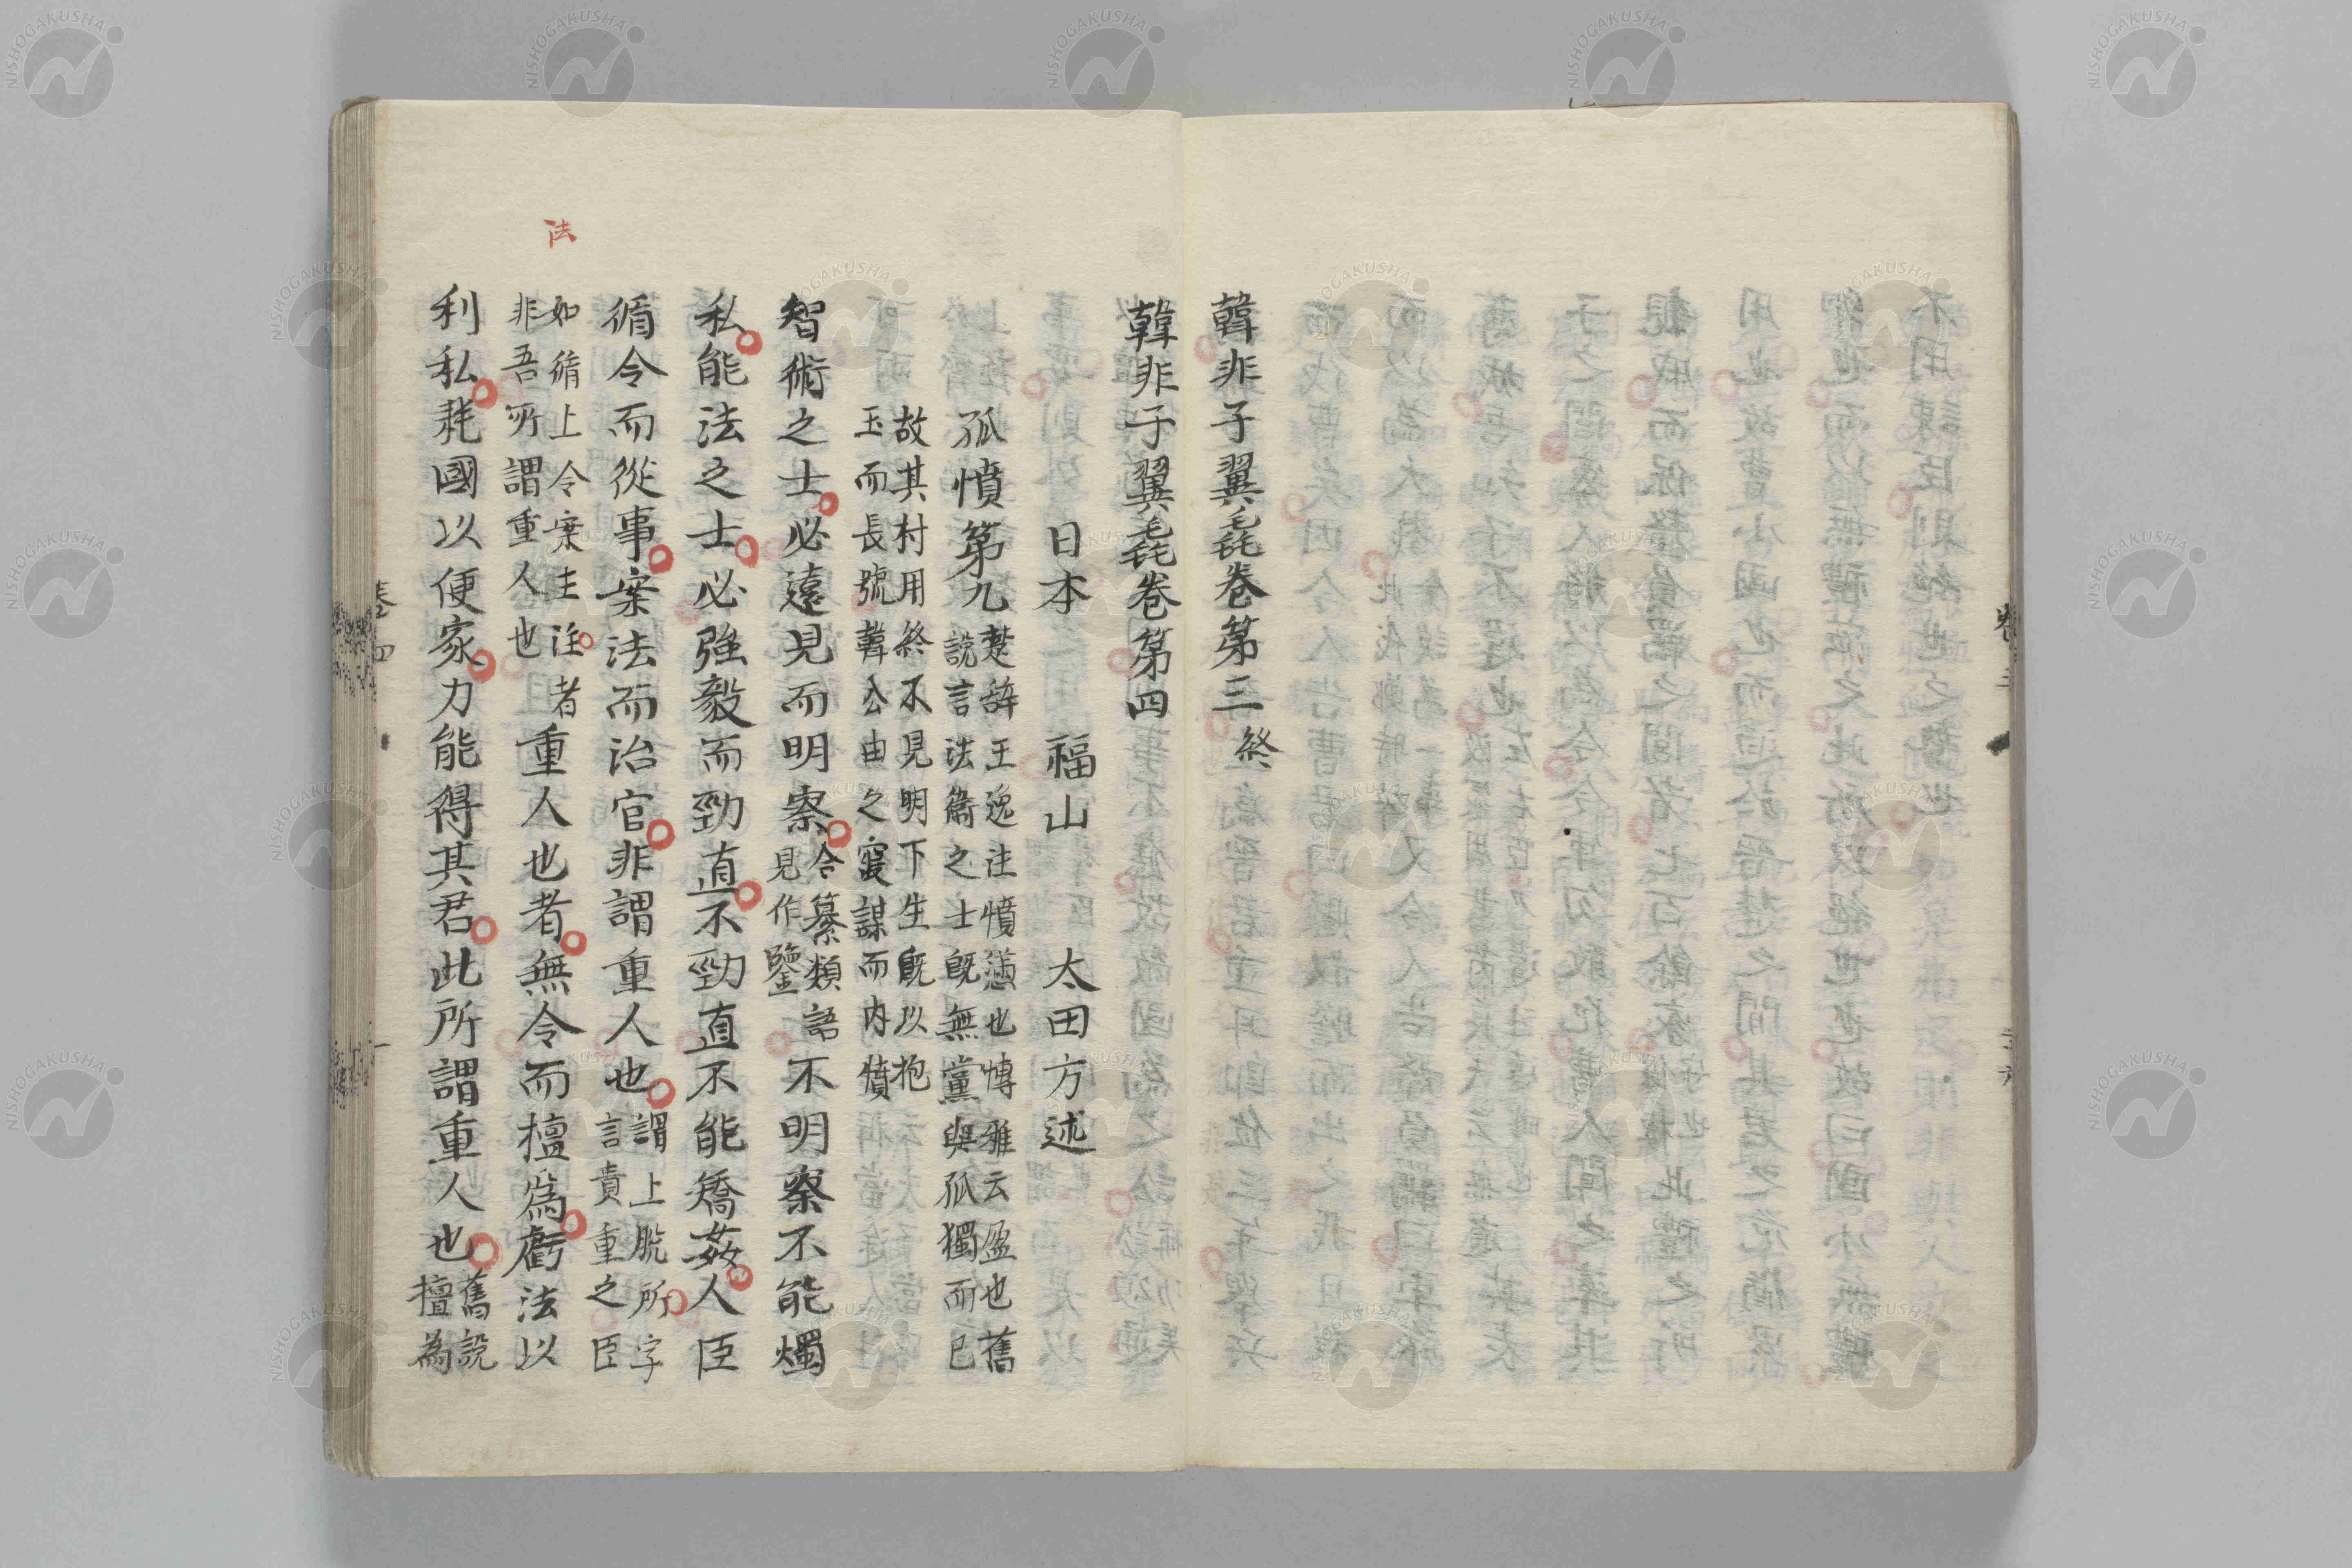 韓非子翼毳卷第三 終
韓非子翼毳卷第四
日本 福山 太田方述
孤憤第九
楚辞王逸注憤懣也博雅云盈也舊
説言法術之士既無黨與孤獨而已
故其材用終不見明下生既以抱
玉而長號韓公由之寝謀而内憤
智術之士必遠見而明察
合纂類語
見作鑒
不明察不能燭
私能法之士必強毅而勁直不勁直不能矯姦人臣
循令而從事案法而治官非謂重人也
謂上脱所字
言貴重之臣
如循上令案主法者
非吾所謂重人也
重人也者無令而擅為虧法以
利私耗國以便家力能得其君此所謂重人也
舊説
擅為
法
卷四
一
NISHOGAKUSHA